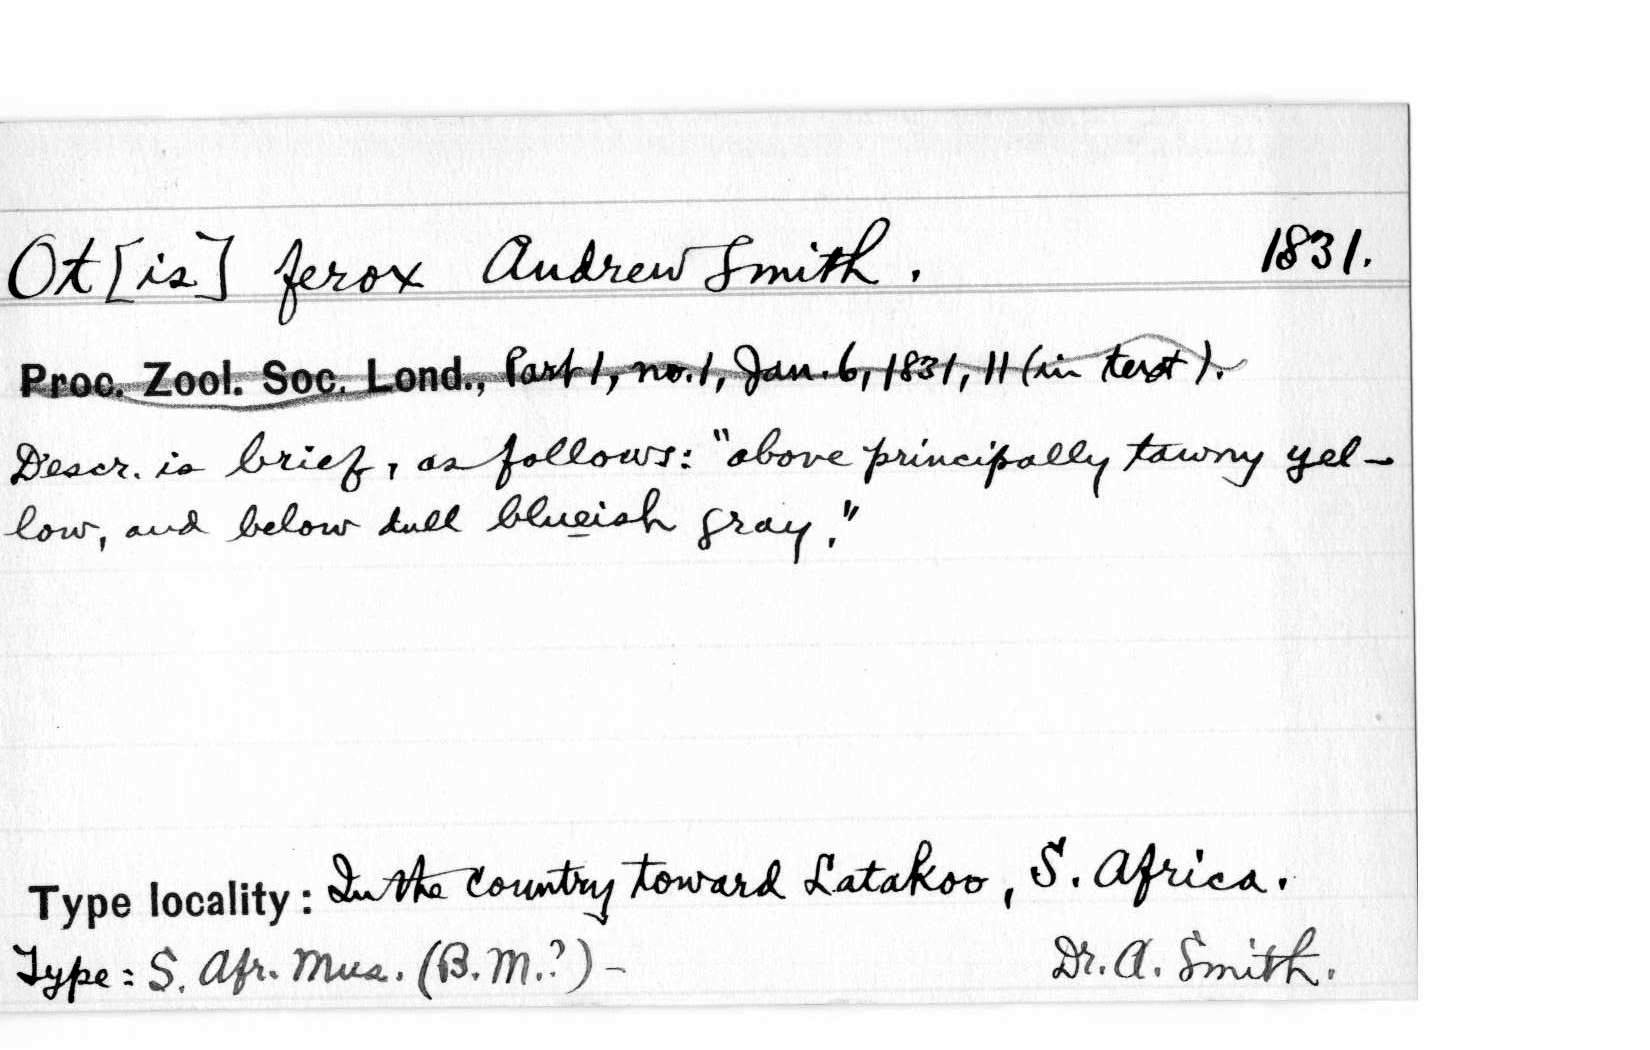 Ot[is] ferox Andrew Smith. 1831.
Proc. Zool. Soc. Lond., Part 1, no. 1, Jan. 6, 1831, 11 (in text).
Descr. is brief, as follows: "above principally tawny yel-
low, and below dull blueish gray."
Type locality: In the country toward Latakoo, S. Africa.
Type: S. Afr. Mus. (B.M.?) - Dr. A. Smith.